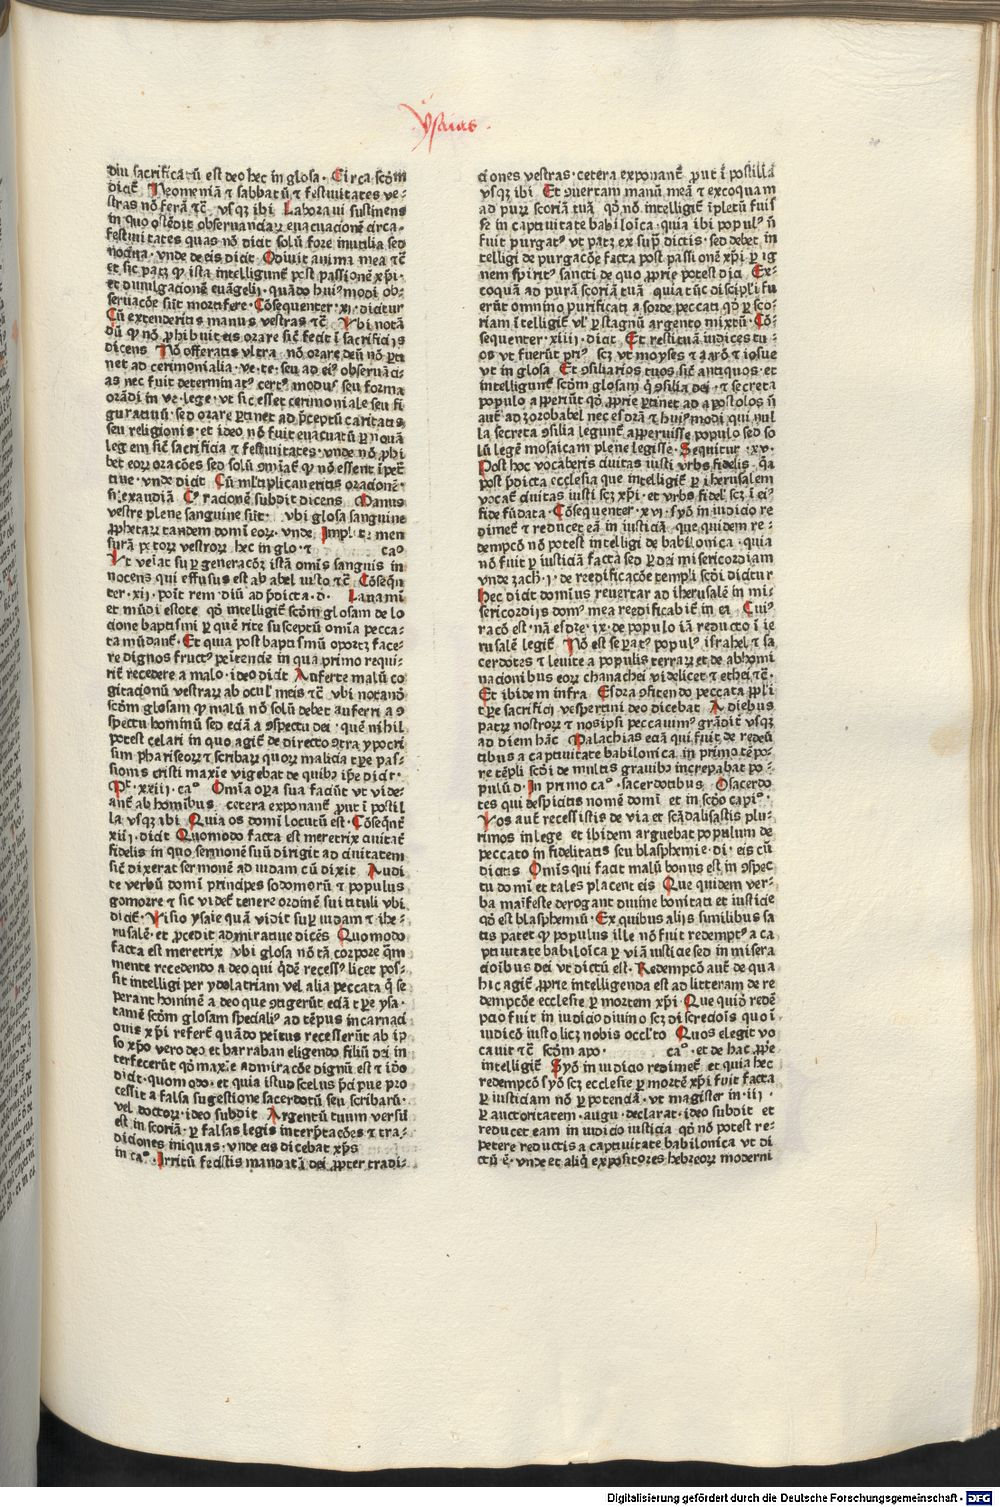 Ysaias.
diu sacrificatū est deo hec in glosa. Circa scḋm
dicit̄. Neomeniā ⁊ sabbatū ⁊ festiuitates ve-
stras nō ferā ⁊c̄ vsqʒ ibi Laboraui sustinens
in quo ostēdit obseruanciaꝝ euacuacionē circa.
festiuitates quas nō dicit solū fore inutilia sed
nociua. vnde de eis dicit Odiuit anima mea ⁊c̄
et sic patʒ ꝙ ista intelligunt̄ post passionē xp̄i.
et diuulgacionē euāgelij. quādo huiꝰmodi ob-
seruacōe sūt mortifere. Cōsequenter .xi. dicitur
Cū extenderitis manus vestras ⁊c̄ Vbi notā
dū ꝙ nō ꝓhibuit eis orare sic̄ fecit ī sacrificijs
dicens Nō offeratis vltra nō orare deū nō ꝑti
net ad cerimonialia .ve.te. seu ad eiꝰ obseruācias
as nec fuit determinatꝰ certꝰ modus seu forma
orādi in ve.lege. vt sic esset cerimoniale seu fi
guratiuū. sed orare ꝑtinet ad p̄ceptū caritatis
seu religionis. et ideo nō fuit euacuatū ꝑ nouā
legem sic̄ sacrificia ⁊ festiuitates. vnde nō ꝓhi
bet eoꝝ oracōes sed solū ꝯmiat̄ ꝙ nō essent īpet̄
tiue. vnde dicit Cū ml̄tiplicaueritis oracionē.
n̄ exaudiā Cꝰ racionē subdit dicens Manus
vestre plene sanguine sūt vbi glosa sanguine
ꝓphetaꝝ tandem domī eoꝝ. vnde Implēt: men
surā pr̄oꝝ vestroꝝ hec in glo.⁊ caº
Vt veīat suꝑ generacōeʒ istā omīs sanguis in
nocens qui effusus est ab abel iusto ⁊c̄ Cōseqn̄
ter .xij. poīt remediū ad p̄dicta.d. Lauamī
et mūdi estote qḋ intelligit̄ scḋm glosam de lo
cione baptismi ꝑ quē rite susceptū omīa pecca-
ta mūdant̄. Et quia post baptismū oportʒ face-
re dignos fructꝰ penitencie in qua primo requi-
rit̄ recedere a malo. ideo dicit Auferte malū co
gitacionū vestraꝝ ab oculꝭ meis ⁊c̄ vbi notanḋ
scḋm glosam ꝙ malū nō solū debet auferri a ꝯ
spectu hominū sed eciā a ꝯspectu dei. quē nihil
potest celari in quo agit̄ de directo ꝯtra ypocri
sim phariseoꝝ ⁊ scribaꝝ quoꝝ malicia tꝑe pas-
sionis cristi maxīe vigebat de quibꝰ ip̄e dicit.
Mt̄.xxiij.caº Omīa oꝑa sua faciūt vt vide-
ant̄ ab homībus cetera exponant̄ ꝓut ī postil
la vsqʒ ibi Quia os domī locutū est. Cōsequēt̄
xiij. dicit Quomodo facta est meretrix ciuitas
fidelis in quo sermonē suū dirigit ad ciuitatem
sic̄ dixerat sermonē ad iudam cū dixit Audi
te verbū domī principes sodomorū ⁊ populus
gomorre ⁊ sic videt̄ tenere ordinē sui tituli vbi
dicit̄. Visio ysaie quā vidit suꝑ iudam ⁊ ihe-
rusalē. et ꝓcedit admiratiue dicēs Quomodo
facta est meretrix vbi glosa nō tā corpore qm̄
mente recedendo a deo qui qḋē recessꝰ licet pos-
sit intelligi per ydolatriam vel alia peccata q̄ se
perant hominē a deo que ꝯtigerūt eciā tꝑe ysa.
tamē scḋm glosam specialiꝰ ad tēpus incarnaci
onis xp̄i refert̄ quādo penitus recesserūt ab ip
so xp̄o vero deo et barraban eligendo filiū dei in
terfecerūt qḋ maxīe admiracōe dignū est ⁊ ido
dicit. quomodo. et quia istud scelus p̄cipue pro
cessit a falsa sugestione sacerdotū seu scribarū.
vel doctoꝝ. ideo subdit Argentū tuum versū
est in scoriā. ꝑ falsas legis interp̄tacōes ⁊ tra-
diciones iniquas. vnde eis dicebat xp̄s
in caº. Irritū fecistis mandatū dei ꝓpter tradi-
ciones vestras. cetera exponant̄ ꝓut ī postilla
vsqʒ ibi Et ꝯuertam manū meā ⁊ excoquam
ad puꝝ scoriā tuā qḋ nō intelligit̄ īpletū fuis
se in captiuitate babiloīca. quia ibi populꝰ n̄
fuit purgatꝰ vt patʒ ex supͣdictis. sed debet in
telligi de purgacōe facta post passionē xp̄i ꝑ ig
nem spiritꝰ sancti de quo ꝓprie potest dici Ex-
coquā ad purā scoriā tuā quia tūc discipli fu
erūt omnino purificati a sorde peccati qḋ ꝑ sco-
riam ītelligit̄ vl̄ ꝑ stagnū argento mixtū. Cō-
sequenter .xiiij. dicit Et restituā iudices tu-
os vt fuerūt priꝰ scʒ vt moyses ⁊ aarō ⁊ iosue
vt in glosa Et ꝯsiliarios tuos sic̄ antiquos. et
intelligunt̄ scḋm glosam q̄ ꝯsilia dei. ⁊ secreta
populo aperiūt qḋ ꝓprie ꝑtinet ad apostolos n̄
aut̄ ad zorobabel nec esdrā ⁊ huiꝰmodi qui nul
la secreta ꝯsilia legunt̄ apperuisse populo sed so
lū legē mosaicam plene legisse. Sequitur .xv.
Post hoc vocaberis ciuitas iusti vrbs fidelis. q̄a
post p̄dicta ecclesia que intelligit̄ ꝑ iherusalem
vocat̄ ciuitas iusti scʒ xp̄i. et vrbs fidelꝭ scʒ ī eiꝰ
fide fūdata. Cōsequenter .xvj. syō in iudicio re
dimet̄ ⁊ reducet eā in iusticiā. que quidem re-
dempcō nō potest intelligi de babilonica. quia
nō fuit ꝑ iusticiā facta sed ꝑ dei misericordiam
vnde zach.j. de reedificacōe templi scḋi dicitur
Hec dicit domīus reuertar ad iherusalē in mi-
sericordijs domꝰ mea reedificabit̄ in ea Cuiꝰ
racō est. nā esdre.ix. de populo iā reducto ī ie
rusalē legit̄ Nō est separatꝰ populꝰ israhel ⁊ sa
cerdotes ⁊ leuite a populis terraꝝ et de abhomi
nacionibus eoꝝ chanachei videlicet ⁊ ethei ⁊c̄.
Et ibidem infra Esdra ꝯfitendo peccata ppl̄i
tꝑe sacrificij vespertini deo dicebat A diebus
patꝝ nostroꝝ ⁊ nosipsi peccauimꝰ grādit̄ vsqʒ
ad diem hāc Malachias eciā qui fuit de redeū
tibus a captiuitate babilonica in primo tēpo-
re tēpli scḋi de multis grauibꝰ increpabat po-
pulū d. In primo caº. sacerdotibus O sacerdo
tes qui despicitis nomē domī et in scḋo capiº.
Vos aut̄ recessistis de via et scādalisastis plu-
rimos in lege et ibidem arguebat populum de
peccato in fidelitatis seu blasphemie. di. eis cū
dicitis Omīs qui facit malū bonus est in ꝯspec
tu domī et tales placent eis Que quidem ver-
ba maīfeste derogant diuine bonitati et iusticie
qḋ est blasphemiū. Ex quibus alijs similibus sa
tis patet ꝙ populus ille nō fuit redemptꝰ a ca
ptiuitate babiloīca ꝑ viā iusticie sed in misera
cioībus dei vt dictū est. Redempcō aut̄ de qua
hic agit̄ ꝓprie intelligenda est ad litteram de re
dempcōe ecclesie ꝑ mortem xp̄i. Que quiḋ redē
pcio fuit in iudicio diuino scʒ discrecioīs quo ī
iudicō iusto licʒ nobis occl̄to Quos elegit vo
cauit ⁊c̄ scḋm apo. caº. et de hac ꝓprie
intelligit̄ Syō in iudicio redimet̄. et quia hec
redempcō syō scʒ ecclesie ꝑ mortē xp̄i fuit facta
ꝑ iusticiam nō ꝑ potenciā. vt magister in .iij.
ꝑ auctoritatem .augu. declarat. ideo subdit et
reducet eam in iudicio iusticia qḋ nō potest re-
petere reductis a captiuitate babilonica vt di
ctū ē. vnde et aliq̄ expositores hebreoꝝ moderni
Digitalisierung gefördert durch die Deutsche Forschungsgemeinschaft - DFG